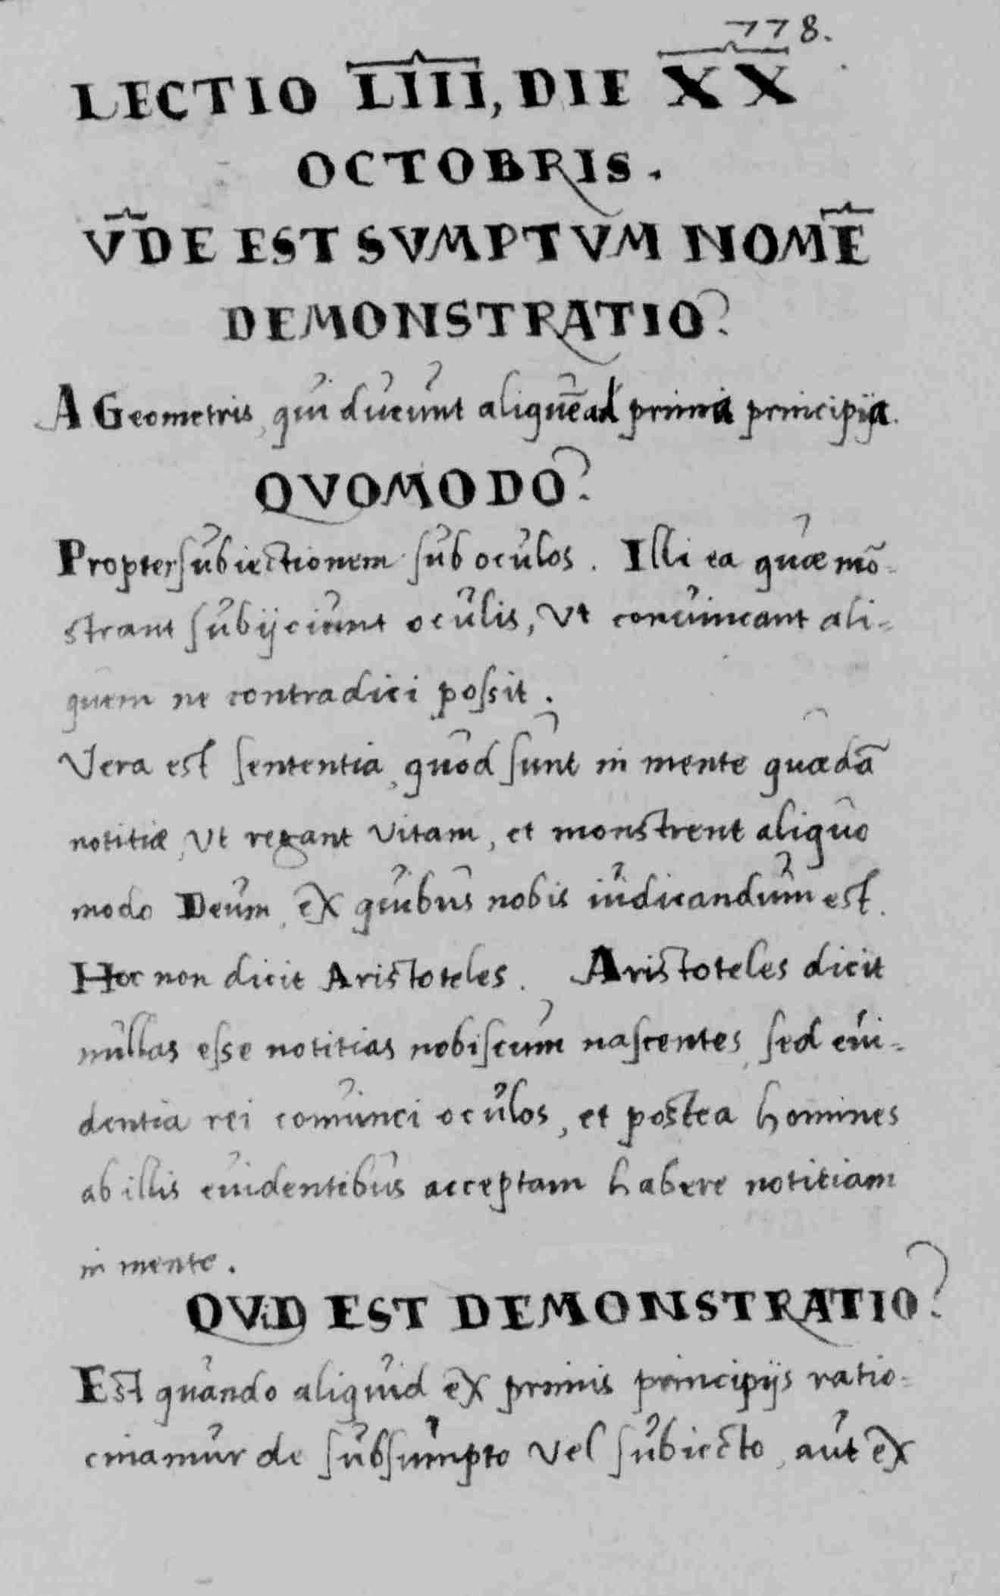 778.
LECTIO LIII, DIE XX
OCTOBRIS.
V̄DE EST SVMPTVM NOMĒ
DEMONSTRATIO?
A Geometris, qui ducunt aliquē ad prima principija.
QVOMODO?
Propter subiectionem sub oculos. Illi ea quæ mō-
strant subijciunt oculis, Vt conuincant ali-
quem ne contradici possit.
Vera est sententia, quod sunt in mente quædā
notitiæ, Vt regant vitam, et monstrent aliquo
modo Deum, ex quibus nobis iudicandum est.
Hoc non dicit Aristoteles. Aristoteles dicit
nullas esse notitias nobiscum nascentes, sed eui-
dentia rei conuinci oculos, et postea homines
ab illis euidentibus acceptam habere notitiam
in mente.
QViD EST DEMONSTRATIO?
Est quando aliquid ex primis principijs ratio-
cinamur de subsumpto vel subiecto, aut ex